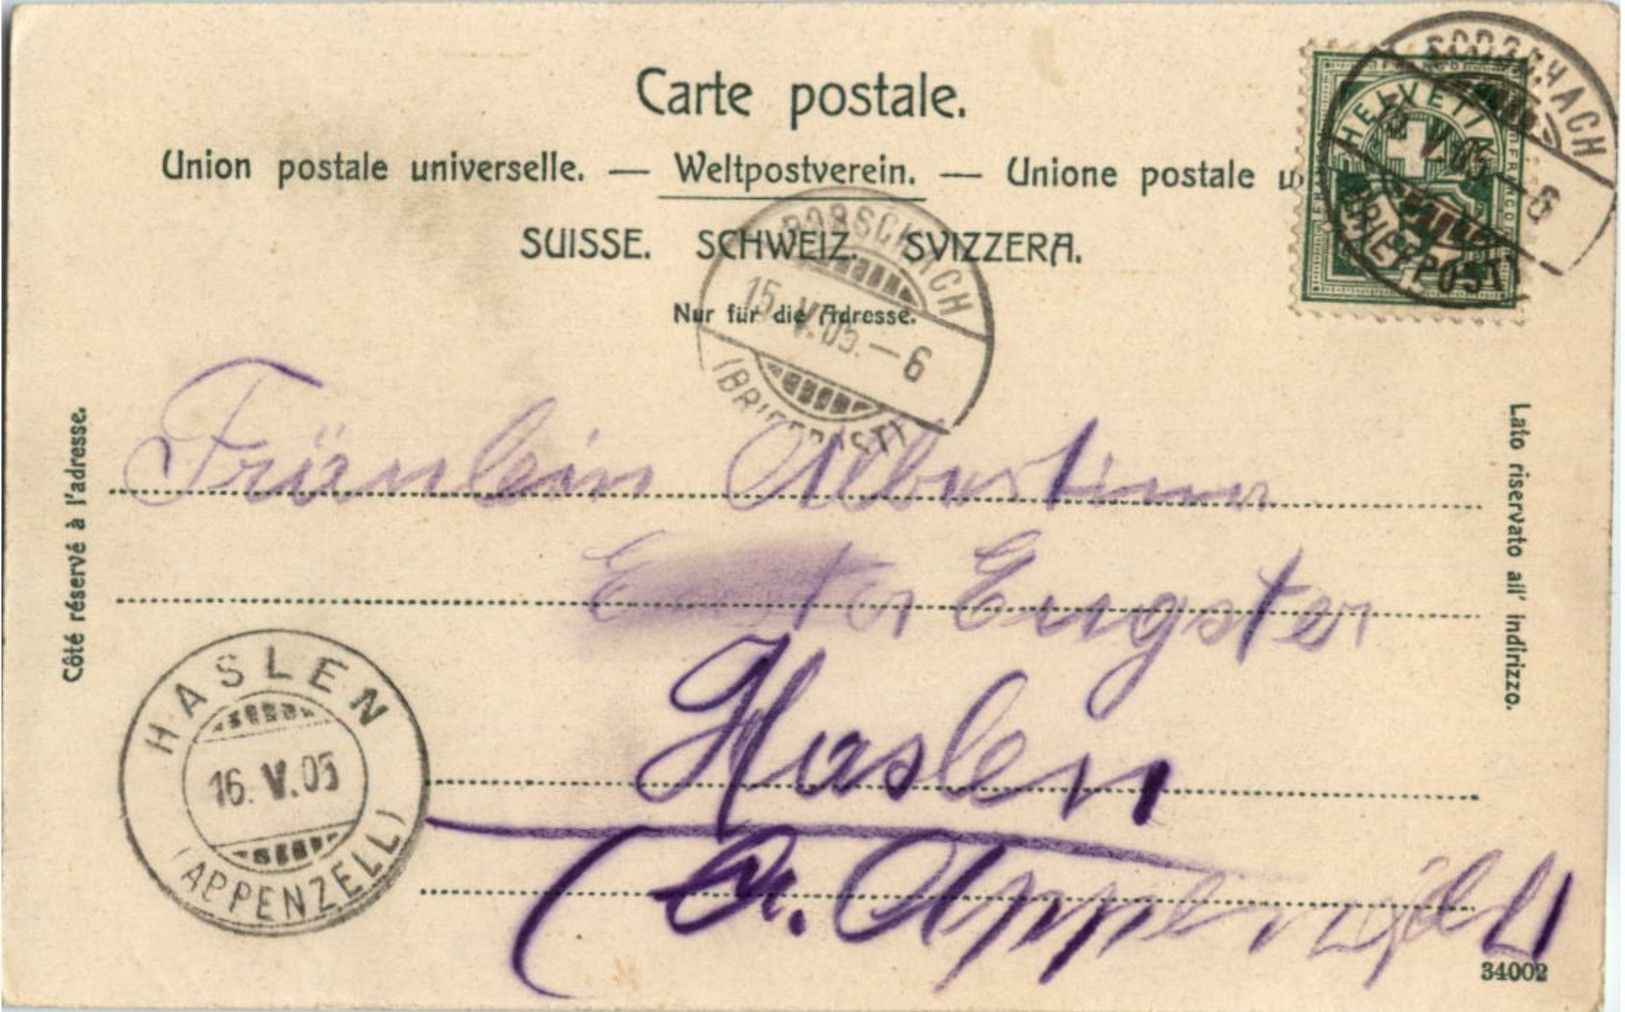 Carte postale.
Union postale universelle. — Weltpostverein. — Unione postale u
SUISSE. SCHWEIZ. SVIZZERA.
Nur für die Adresse.
HELVETIA
RORSCHACH
15.V.05.—6
(BRIEFPOST)
RORSCHACH
15.V.05.—6
(BRIEFPOST)
Côté réservé à l'adresse.
Lato riservato all' indirizzo.
Fräulein
Engster
Haslen
(Ct. Appenzell
HASLEN
16.V.05
(APPENZELL)
34002